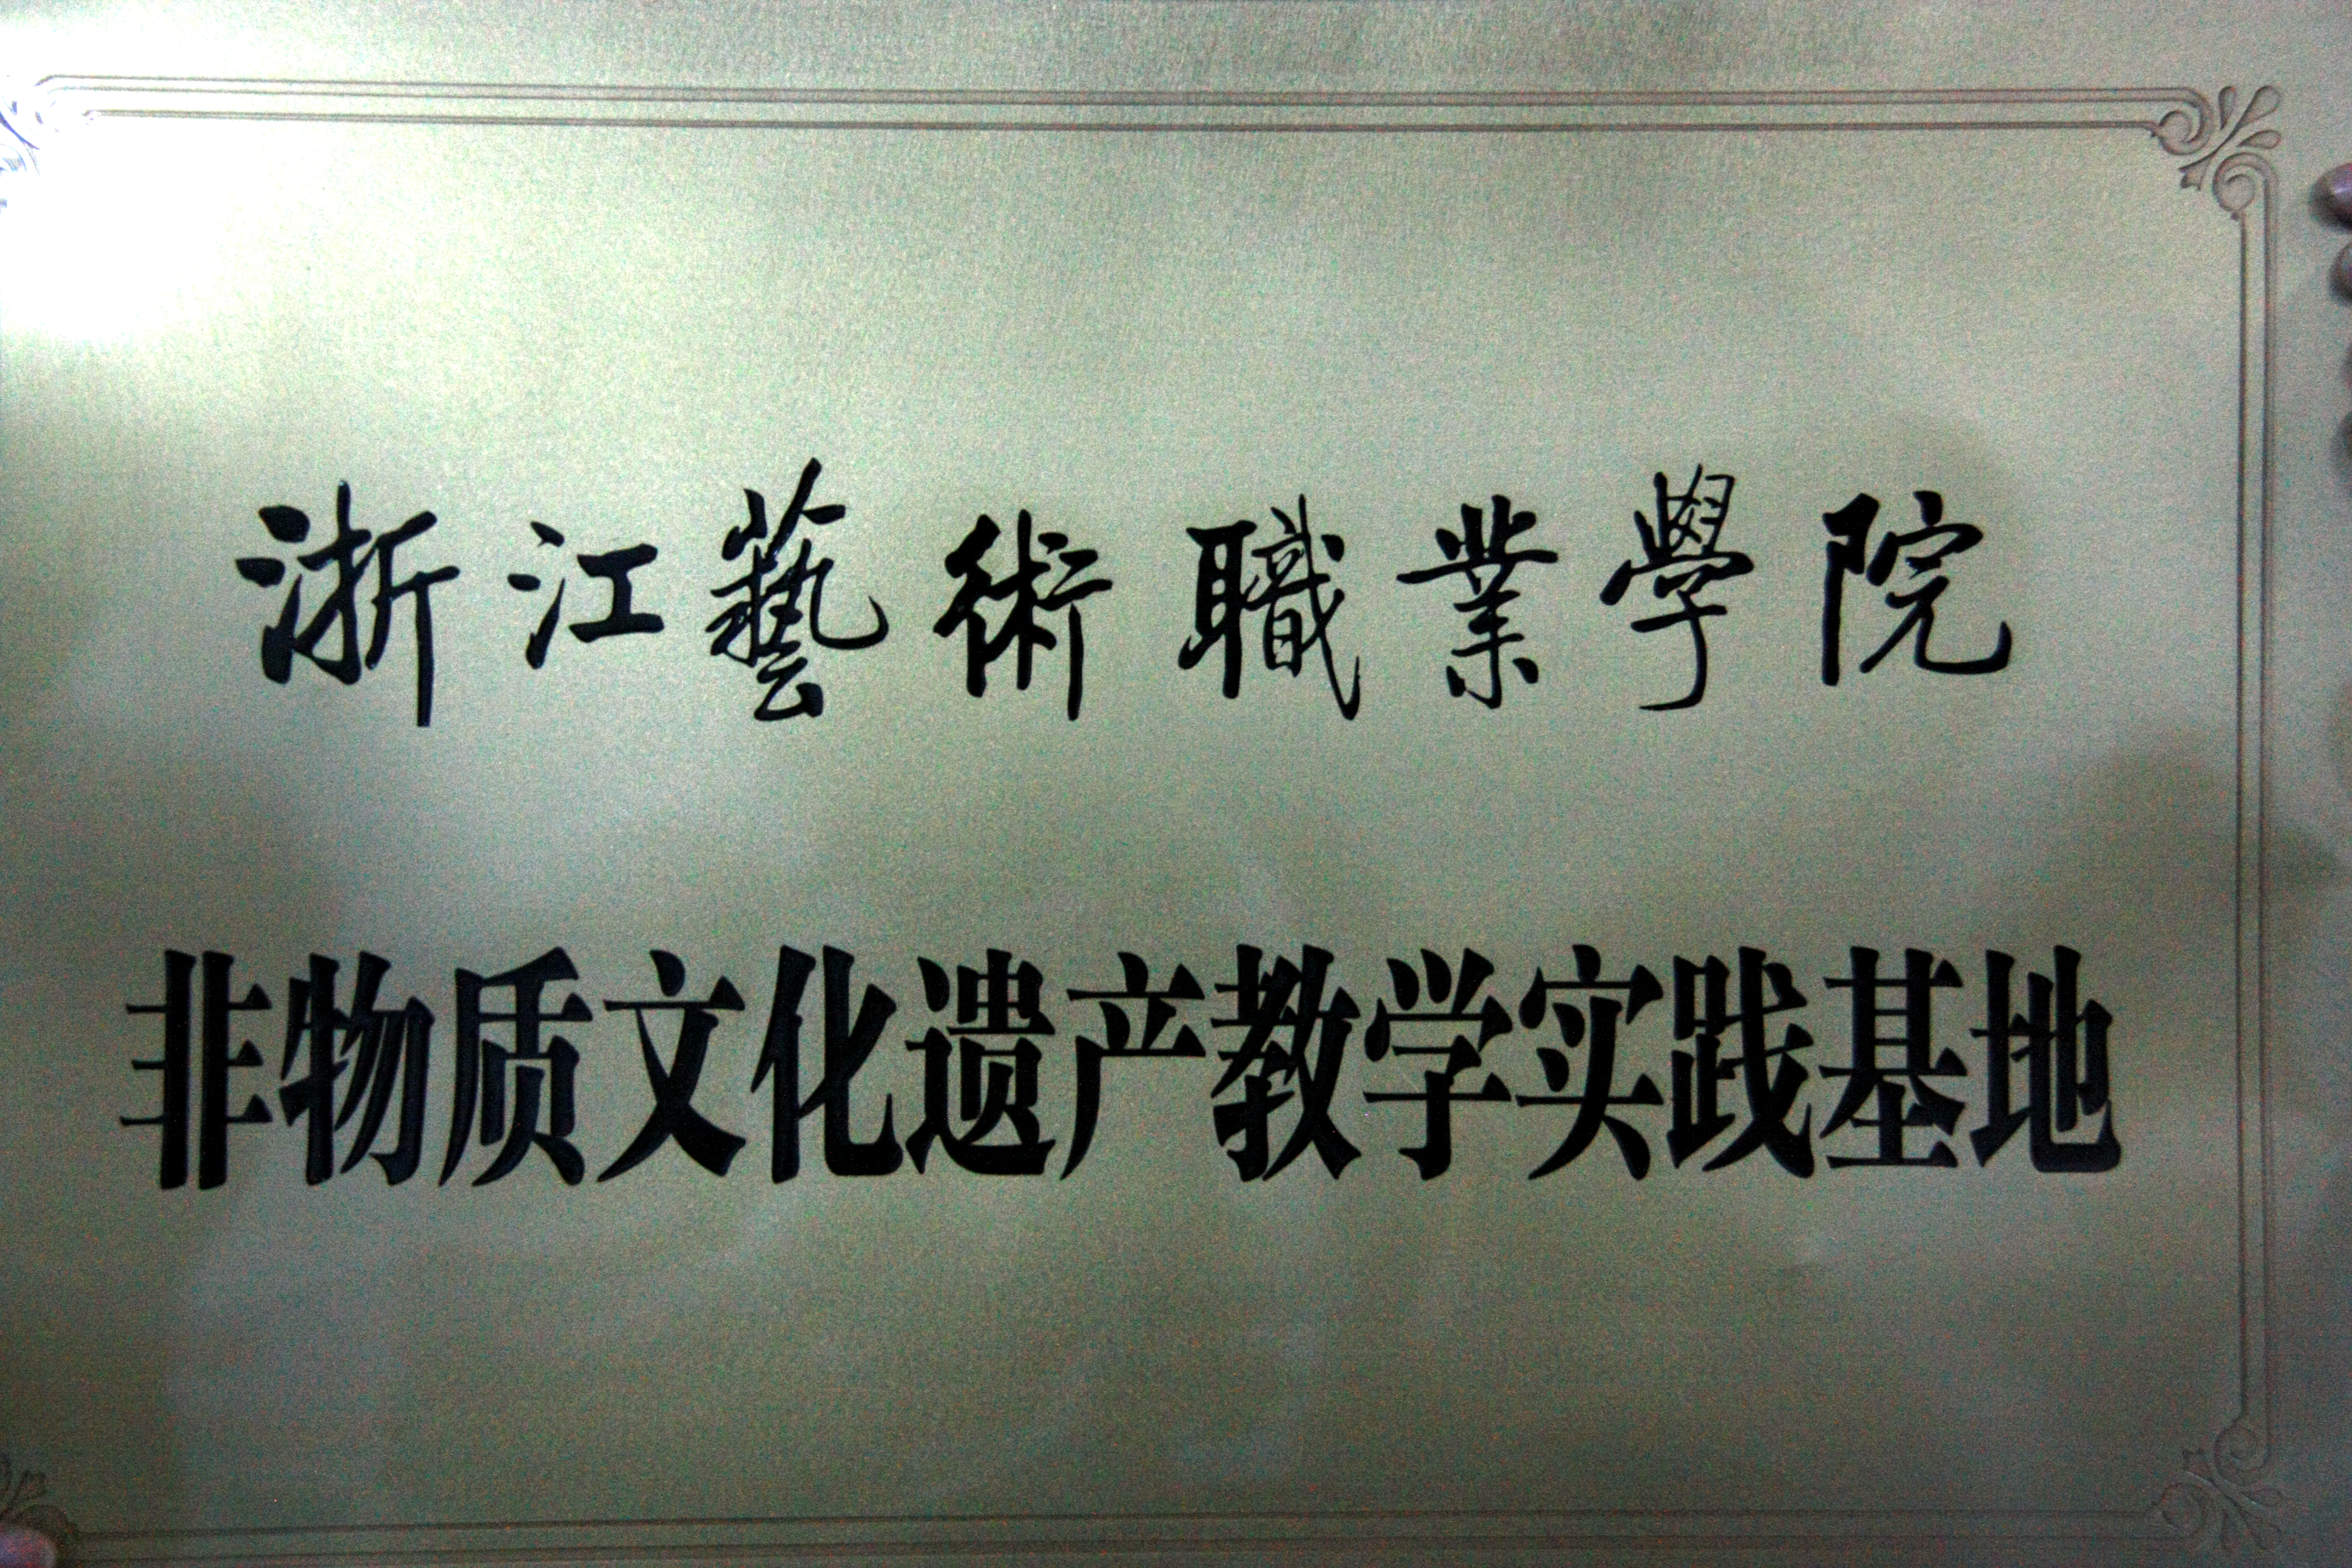 浙江藝術職業學院
非物质文化遗产教学实践基地